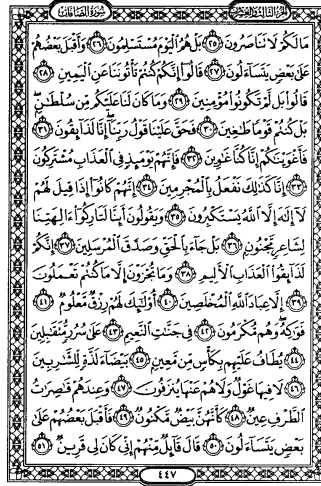 الجزء الثالث والعشرون سورة الصافات
مَا لَكُمْ لَا تَنَاصَرُونَ ٢٥ بَلْ هُمُ الْيَوْمَ مُسْتَسْلِمُونَ ٢٦ وَأَقْبَلَ بَعْضُهُمْ
عَلَى بَعْضٍ يَتَسَاءَلُونَ ٢٧ قَالُوا إِنَّكُمْ كُنْتُمْ تَأْتُونَنَا عَنِ الْيَمِينِ ٢٨
قَالُوا بَلْ لَمْ تَكُونُوا مُؤْمِنِينَ ٢٩ وَمَا كَانَ لَنَا عَلَيْكُمْ مِنْ سُلْطَانٍ
بَلْ كُنْتُمْ قَوْمًا طَاغِينَ ٣٠ فَحَقَّ عَلَيْنَا قَوْلُ رَبِّنَا إِنَّا لَذَائِقُونَ ٣١
فَأَغْوَيْنَاكُمْ إِنَّا كُنَّا غَاوِينَ ٣٢ فَإِنَّهُمْ يَوْمَئِذٍ فِي الْعَذَابِ مُشْتَرِكُونَ
٣٣ إِنَّا كَذَلِكَ نَفْعَلُ بِالْمُجْرِمِينَ ٣٤ إِنَّهُمْ كَانُوا إِذَا قِيلَ لَهُمْ
لَا إِلَهَ إِلَّا اللَّهُ يَسْتَكْبِرُونَ ٣٥ وَيَقُولُونَ أَئِنَّا لَتَارِكُو آلِهَتِنَا
لِشَاعِرٍ مَجْنُونٍ ٣٦ بَلْ جَاءَ بِالْحَقِّ وَصَدَّقَ الْمُرْسَلِينَ ٣٧ إِنَّكُمْ
لَذَائِقُوا الْعَذَابِ الْأَلِيمِ ٣٨ وَمَا تُجْزَوْنَ إِلَّا مَا كُنْتُمْ تَعْمَلُونَ
٣٩ إِلَّا عِبَادَ اللَّهِ الْمُخْلَصِينَ ٤٠ أُولَئِكَ لَهُمْ رِزْقٌ مَعْلُومٌ ٤١
فَوَاكِهُ وَهُمْ مُكْرَمُونَ ٤٢ فِي جَنَّاتِ النَّعِيمِ ٤٣ عَلَى سُرُرٍ مُتَقَابِلِينَ
٤٤ يُطَافُ عَلَيْهِمْ بِكَأْسٍ مِنْ مَعِينٍ ٤٥ بَيْضَاءَ لَذَّةٍ لِلشَّارِبِينَ
٤٦ لَا فِيهَا غَوْلٌ وَلَا هُمْ عَنْهَا يُنْزَفُونَ ٤٧ وَعِنْدَهُمْ قَاصِرَاتُ
الطَّرْفِ عِينٌ ٤٨ كَأَنَّهُنَّ بَيْضٌ مَكْنُونٌ ٤٩ فَأَقْبَلَ بَعْضُهُمْ عَلَى
بَعْضٍ يَتَسَاءَلُونَ ٥٠ قَالَ قَائِلٌ مِنْهُمْ إِنِّي كَانَ لِي قَرِينٌ ٥١
٤٤٧